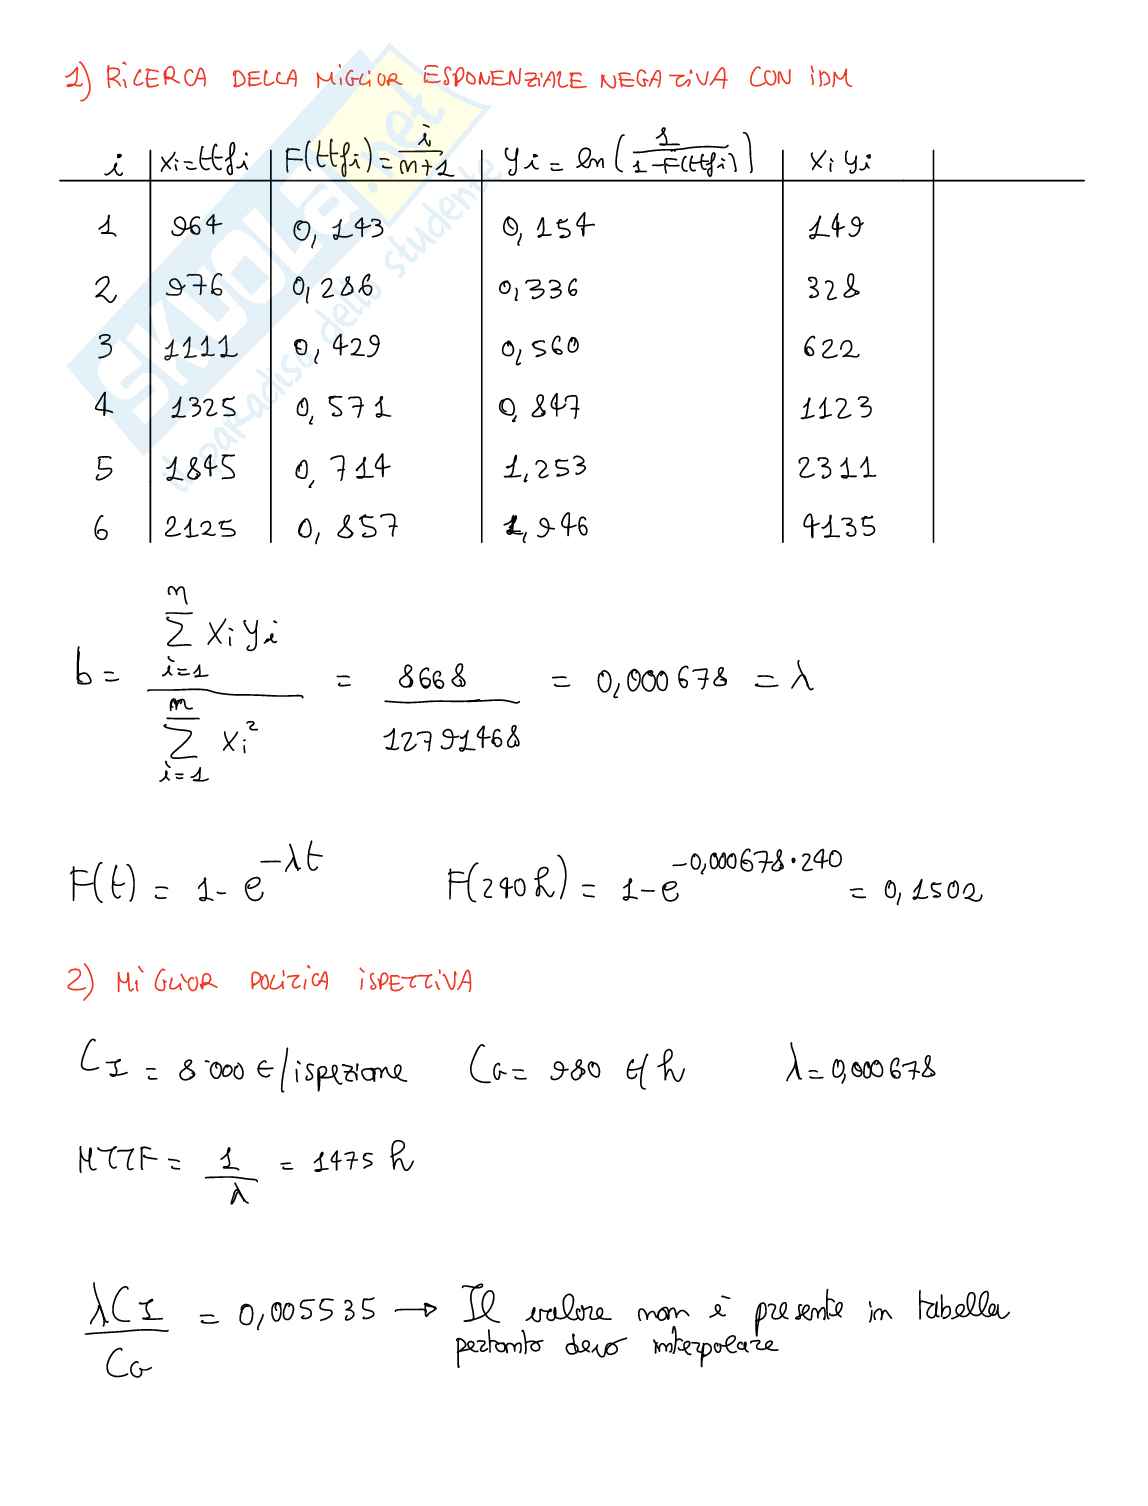 1) RICERCA DELLA MIGLIOR ESPONENZIALE NEGATIVA CON IDM
i | xi=ttfi | F(ttfi)=i/(n+1) | yi=ln(1/(1-F(ttfi))) | xi yi
1 | 964 | 0,143 | 0,154 | 149
2 | 976 | 0,286 | 0,336 | 328
3 | 1111 | 0,429 | 0,560 | 622
4 | 1325 | 0,571 | 0,847 | 1123
5 | 1845 | 0,714 | 1,253 | 2311
6 | 2125 | 0,857 | 1,946 | 4135
SKUOLA.net
il paradiso dello studente
b = Σ_{i=1}^{n} xi yi / Σ_{i=1}^{n} xi² = 8668 / 12791468 = 0,000678 = λ
F(t) = 1-e^{-λt} F(240h) = 1-e^{-0,000678·240} = 0,1502
2) MIGLIOR POLITICA ISPETTIVA
CI = 8'000 €/ispezione CG = 980 €/h λ=0,000678
MTTF = 1/λ = 1475 h
λCI/CG = 0,005535 → Il valore non è presente in tabella
pertanto devo interpolare